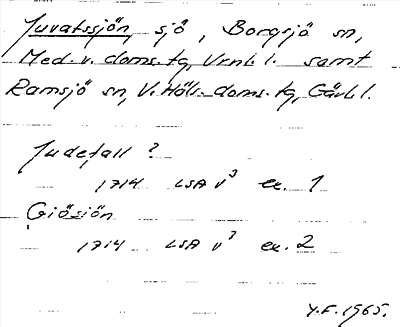 Juvatssjön, sjö, Borgsjö sn,
Med. v. doms. tg, Vrnl l. samt
Ramsjö sn, V. Häls. doms. tg, Gävl l.
Judefall ?
1714 LSA v³ ex. 1
Giösiön
1714 LSA v³ ex. 2
Y.F. 1965.